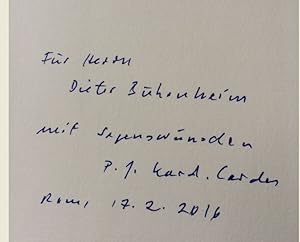 Für Herrn
Dieter Bührnheim
mit Segenswünschen
P. J. Kard. Cordes
Rom, 17.2.2016